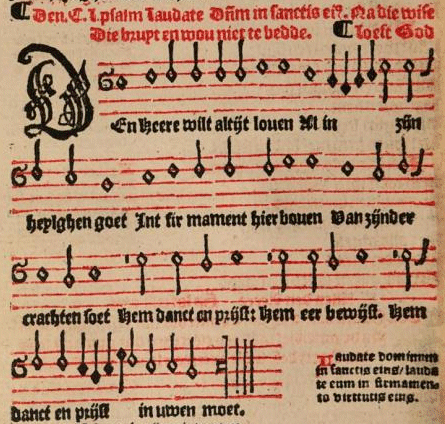 Den. C. L psalm Laudate Dñm in sanctis ei⁹. Na die wise
Die bruyt en wou niet te bedde. Loeft God
DEn heere wilt altijt loven Al in zijn
heylghen goet Int firmament hier boven Van zijnder
crachten soet Hem danct en prijst: hem eer bewijst. Hem
danct en prijst in uwen moet.
Laudate dominum
in sanctis eius/ lauda
te eum in firmamen⸗
to virtutis eius.